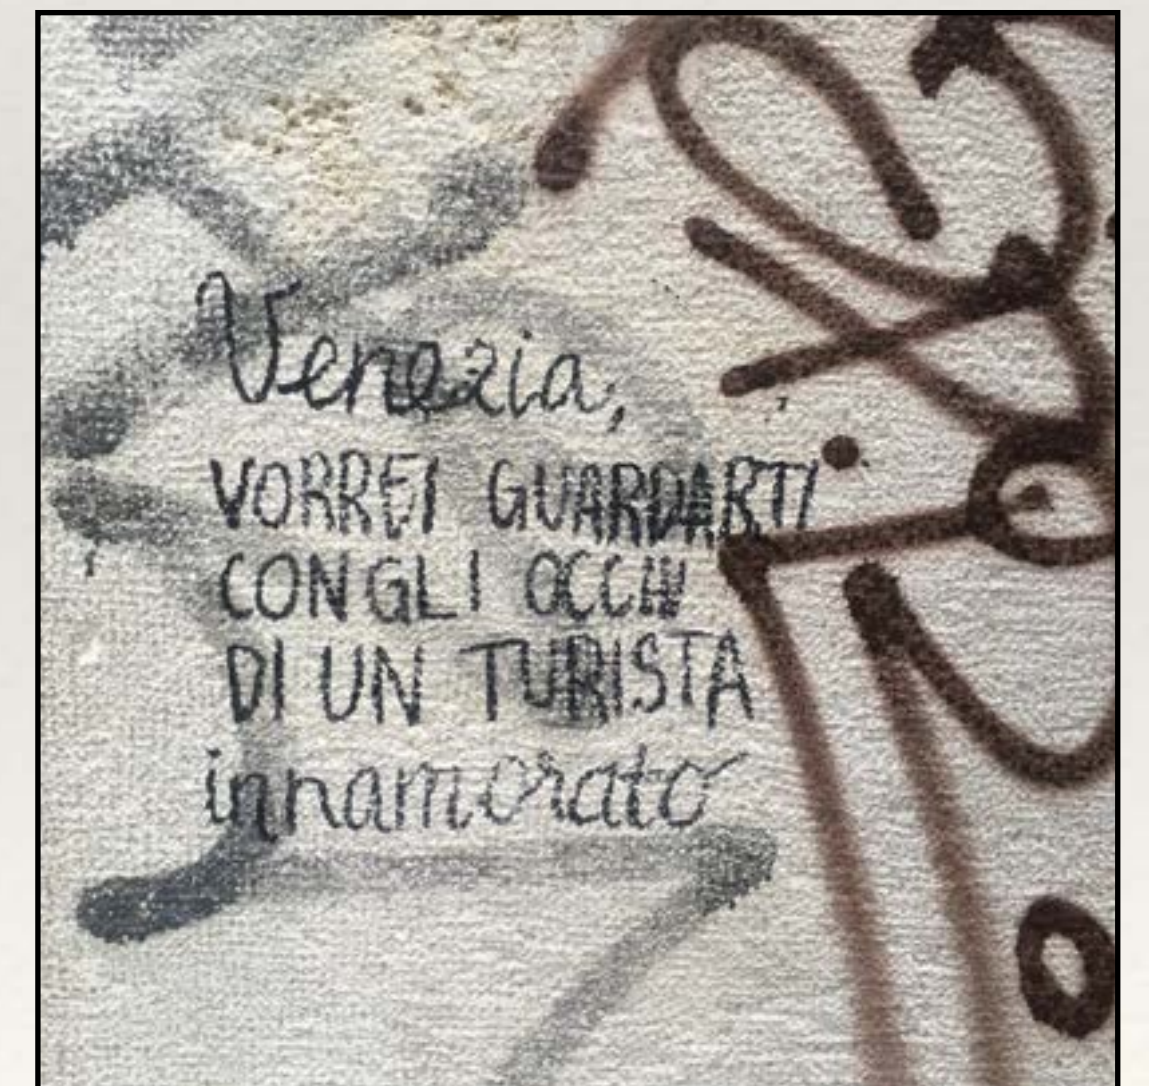 Venezia,
VORREI GUARDARTI
CON GLI OCCHI
DI UN TURISTA
innamorato